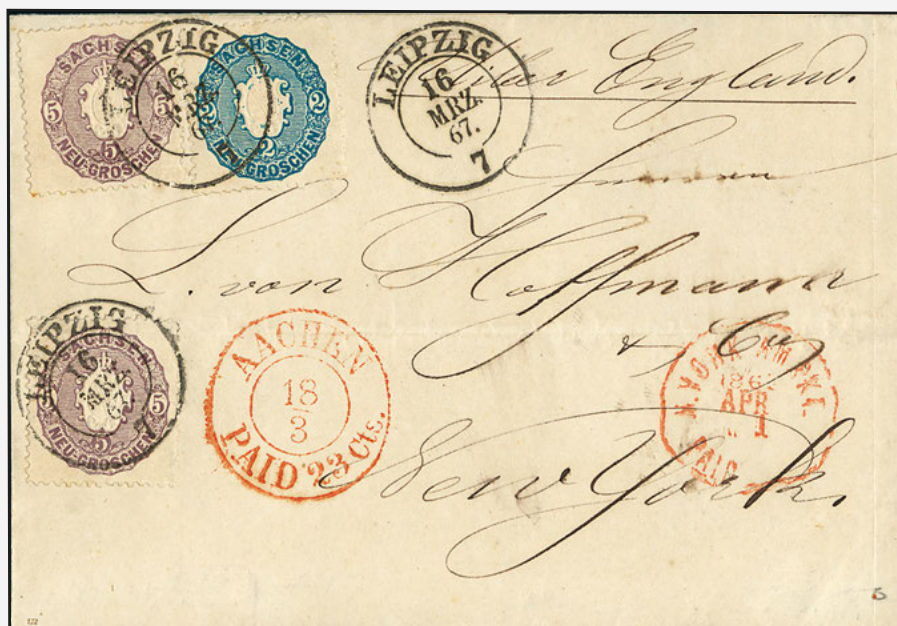 SACHSEN
5 5
5
NEU-GROSCHEN
LEIPZIG
16
MRZ
67
SACHSEN
2 2
2
NEU-GROSCHEN
LEIPZIG
16
MRZ.
67.
7
England.
L. von Hoffmann
& Co
New York.
LEIPZIG
16
MRZ
67.
7
SACHSEN
5
5
NEU-GROSCHEN
AACHEN
18
3
PAID 23 Cts.
N. YORK AM. PKT.
APR
1
PAID